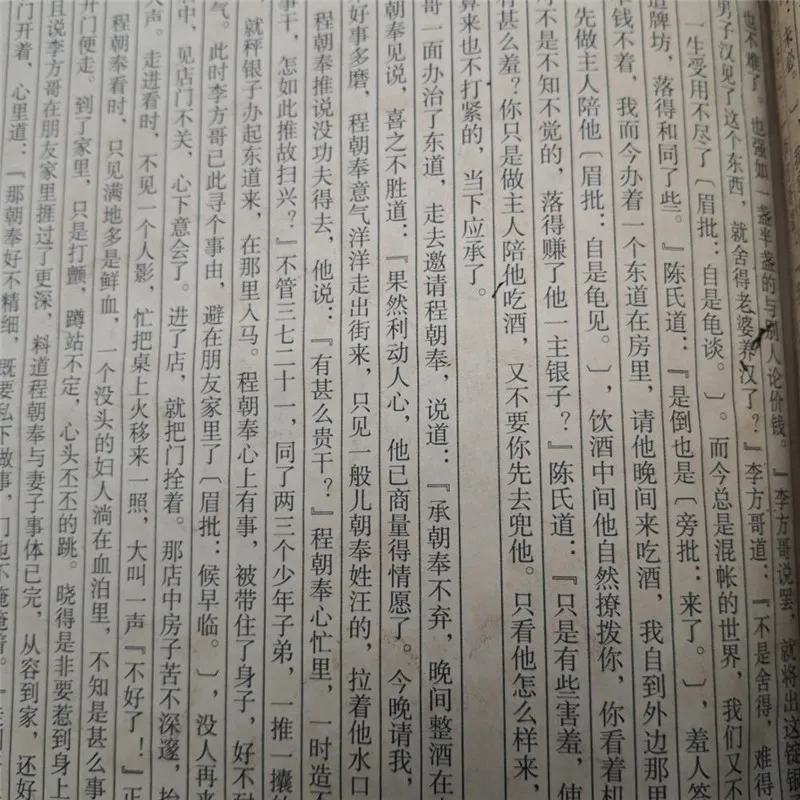 也不难了。也强如一盏半盏的与别人论价钱。』李方哥说罢，就将出这锭银
男子汉见了这个东西，就舍得老婆养汉了？』李方哥道：『不是舍得，难得
一生受用不尽了〔眉批：自是龟谈。〕。而今总是混帐的世界，我们又不
道牌坊，落得和同了些。』陈氏道：『是倒也是〔旁批：来了。〕，羞人答
钱不着，我而今办着一个东道在房里，请他晚间来吃酒，我自到外边那里
先做主人陪他〔眉批：自是龟见。〕，饮酒中间他自然撩拨你，你看着机
不是不知不觉的，落得赚了他一主银子？』陈氏道：『只是有些害羞，使
有甚么羞？你只是做主人陪他吃酒，又不要你先去兜他。只看他怎么样来，
算来也不打紧的，当下应承了。
哥一面办治了东道，走去邀请程朝奉，说道：『承朝奉不弃，晚间整酒在
朝奉见说，喜之不胜道：『果然利动人心，他已商量得情愿了。今晚请我，
好事多磨，程朝奉意气洋洋走出街来，只见一般儿朝奉姓汪的，拉着他水口
程朝奉推说没功夫得去，他说：『有甚么贵干？』程朝奉心忙里，一时造不
事干，怎如此推故扫兴？』不管三七二十一，同了两三个少年子弟，一推一攮的
就秤银子办起东道来，在那里入马。程朝奉心上有事，被带住了身子，好不
气。此时李方哥已此寻个事由，避在朋友家里了〔眉批：候早临。〕，没人再来
来中，见店门不关，心下意会了。进了店，就把门拴着。那店中房子苦不深邃，抬
声。走进看时，不见一个人影，忙把桌上火移来一照，大叫一声『不好了！』正
程朝奉看时，只见满地多是鲜血，一个没头的妇人淌在血泊里，不知是甚么事
开门便走。到了家里，只是打颤，蹲站不定，心头丕丕的跳。晓得是非要惹到身上
且说李方哥在朋友家里捱过了更深，料道程朝奉与妻子事体已完，从容到家，还好
门开着，心里道：『那朝奉好不精细，既要私下做事，门也不掩掩着。』